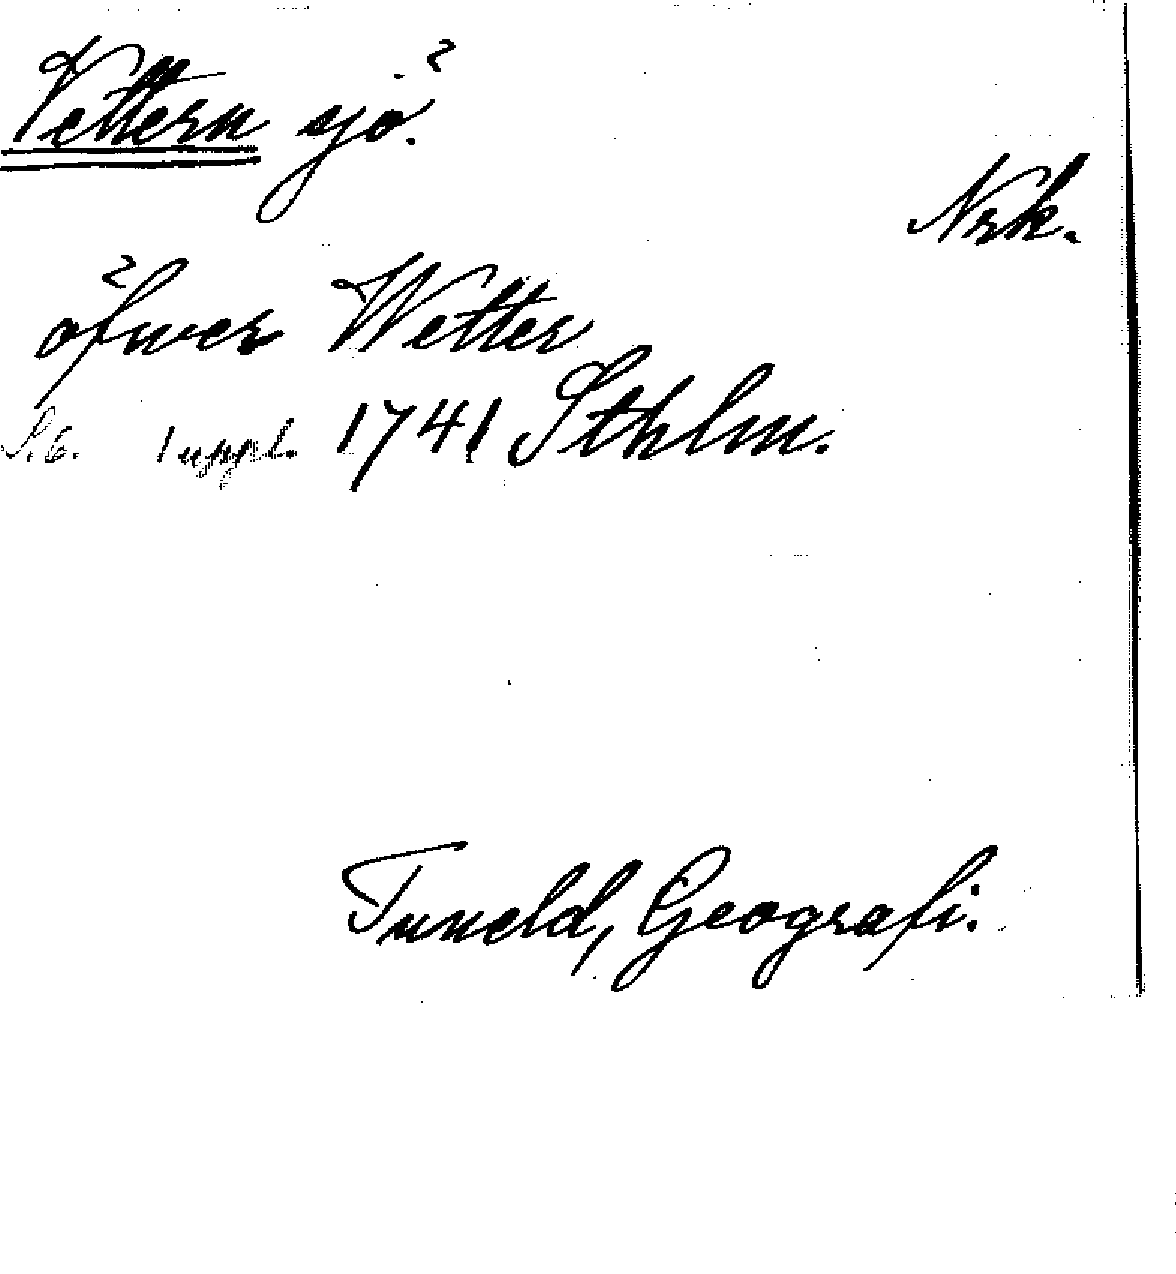 Vettern sjö.
Nrk.
öfwer Wetter
S. 6. 1 uppl. 1741 Sthlm.
Tuneld, Geografi.